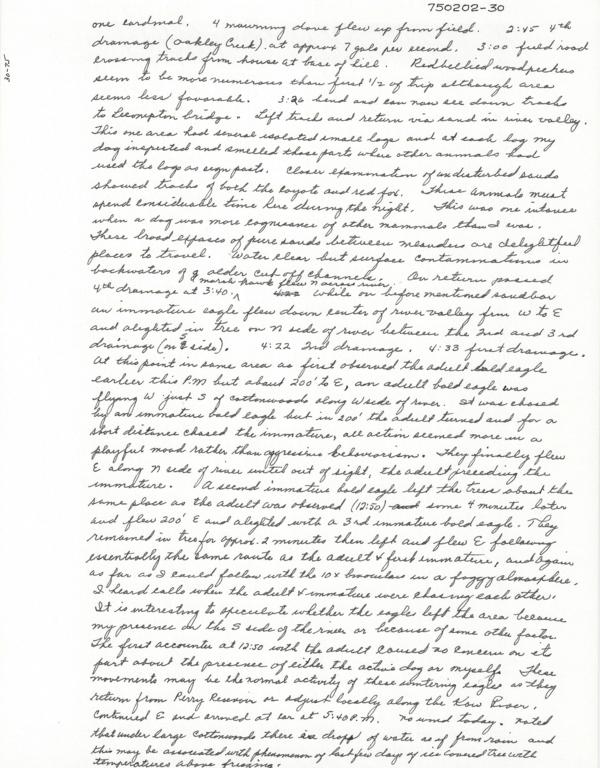 750202-30
30-75
one cardinal. 4 mourning dove flew up from field. 2:45 4th
drainage (Oakley Creek) at approx 7 gals per second. 3:00 field road
crossing tracks from house at base of hill. Redbellied woodpeckers
seem to be more numerous than first 1/2 of trip although area
seems less favorable. 3:26 bend and can now see down tracks
to Lecompton bridge. Left track and return via sand in river valley.
This one area had several isolated small logs and at each log my
dog inspected and smelled those parts where other animals had
used the log as sign posts. Closer examination of undisturbed sands
showed tracks of both the coyote and red fox. These animals must
spend considerable time here during the night. This was one instance
when a dog was more cognisance of other mammals than I was.
These broad expanses of pure sands between meanders are delightful
places to travel. Water clear but surface contaminations in
backwaters of older cut off channels. On return passed
4th drainage at 3:40. ^ a marsh hawk flew N across river. 4:22 while on before mentioned sandbar
an immature eagle flew down center of river valley from W to E
and alighted in tree on N side of river between the 2nd and 3rd
drainage (on S side). 4:22 2nd drainage. 4:33 first drainage.
At this point in same area as first observed the adult bald eagle
earlier this P.M but about 200' to E, an adult bald eagle was
flying W just S of cottonwoods along N side of river. It was chased
by an immature bald eagle but in 200' the adult turned and for a
short distance chased the immature, all action seemed more in a
playful mood rather than aggressive behaviorism. They finally flew
E along N side of river until out of sight, the adult preceding the
immature. A second immature bald eagle left the trees about the
same place as the adult was observed (12:50) and some 4 minutes later
and flew 200' E and alighted with a 3rd immature bald eagle. They
remained in tree for approx. 2 minutes then left and flew E following
essentially the same route as the adult & first immature, and again
as far as I could follow with the 10x binoculars in a foggy atmosphere.
I heard calls when the adult & immature were chasing each other.
It is interesting to speculate whether the eagles left the area because
my presence on the S side of the river or because of some other factor.
The first accounter at 12:50 with the adult caused no concern on it
part about the presence of either the active dog or myself. These
movements may be the normal activity of these wintering eagles as they
return from Perry Reservoir or adjust locally along the Kaw River.
Continued E and arrived at car at 5:40 P.M. No wind today. noted
that under large cottonwoods there is dropp of water as if from rain and
this may be associated with phenomenon of last few days of ice covered tree with
temperatures above freezing.